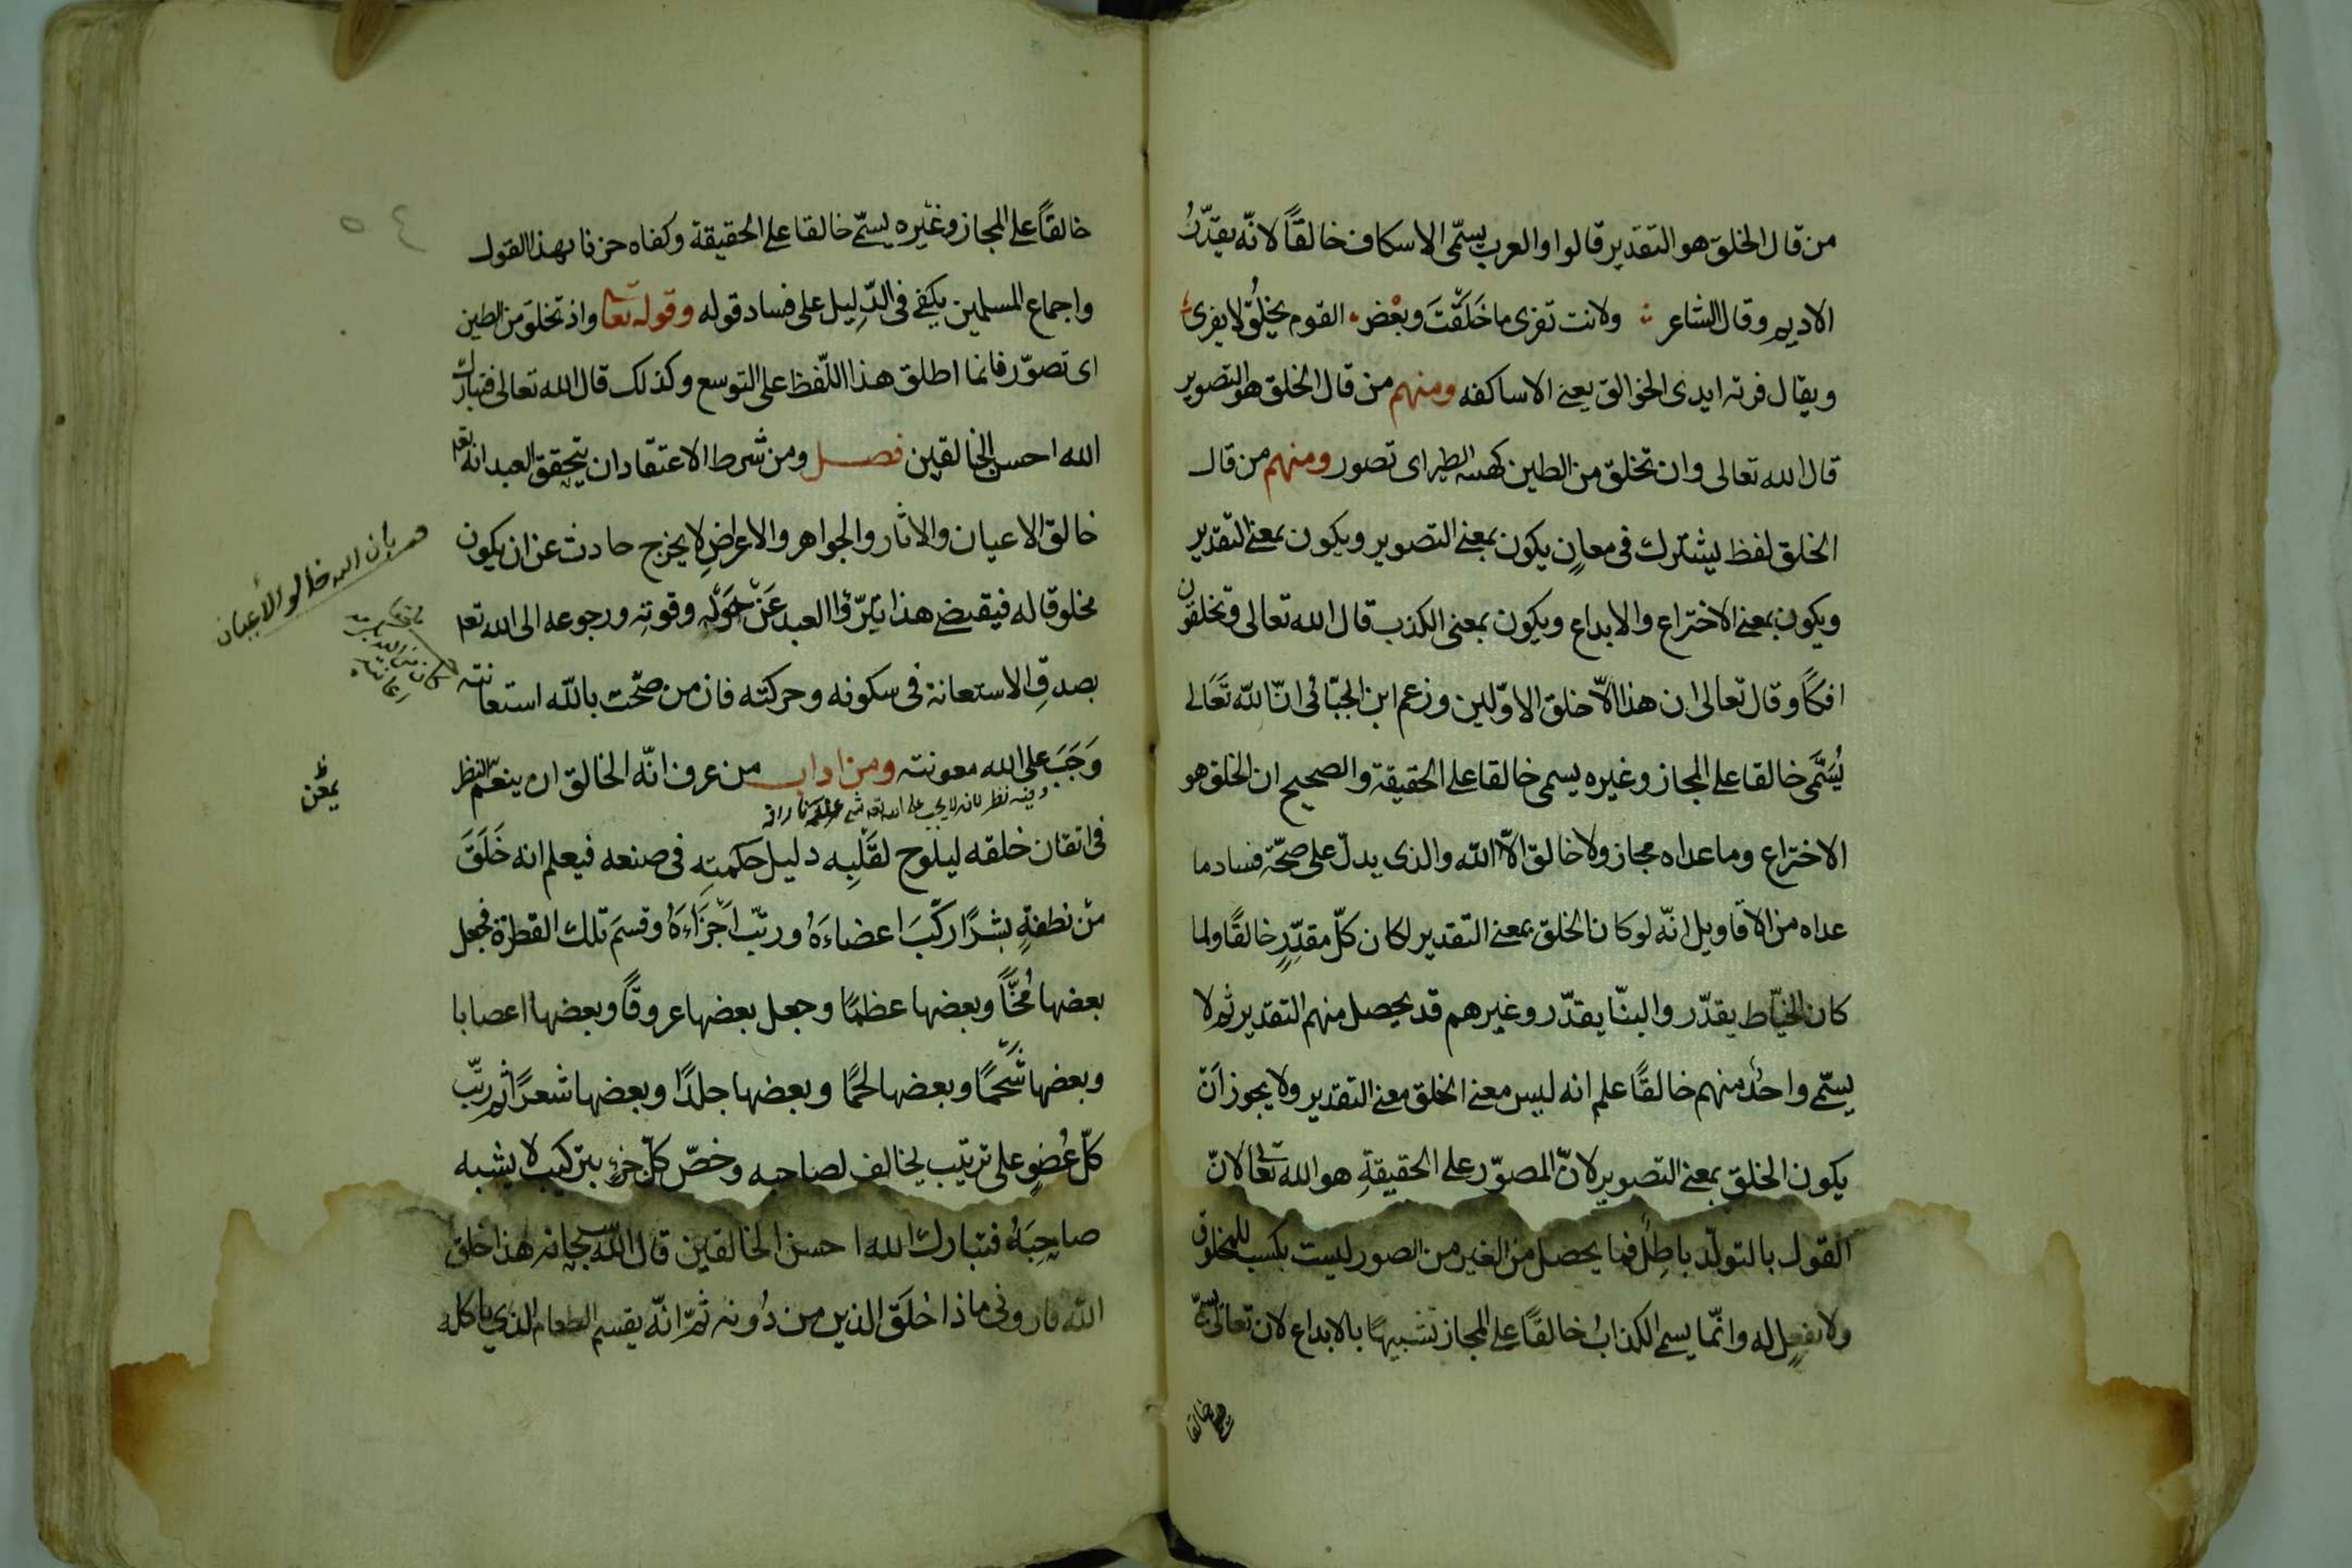 من قال الخلق هو التقدير قالوا والعرب يسمّى الاسكاف خالقًا لانّه يقدّرُ
الاديم وقال الشاعر ولانت تفرى ما خَلَقْتَ وبعْض القوم يخلُق لا يفرى
ويقال فرته ايدى الخوالق يعنى الاساكفه ومنهم من قال الخلق هو التصوير
قال الله تعالى وان تخلق من الطين كهيئه الطير اى تصور ومنهم من قال
الخلق لفظ يشترك فى معانٍ يكون بمعنى التصوير ويكون بمعنى التقدير
ويكون بمعنى الاختراع والابداع ويكون بمعنى الكذب قال الله تعالى وتخلقون
افكًا وقال تعالى ان هذا الّا خلق الاوّلين وزعم ابن الجبّائى انّ الله تَعَالى
يُسَمَّى خالقا على المجاز وغيره يسمى خالقا على الحقيقة والصحيح ان الخلق هو
الاختراع وما عداه مجاز ولا خالق الّا الله والذى يدلّ على صحّة فساد ما
عداه من الاقاويل انّه لو كان الخلق بمعنى التقدير لكان كلّ مقدِّرٍ خالقًا ولما
كان الخيّاط يقدّر والبنّا يقدّر وغيرهم قد يحصل منهم التقدير ثم لا
يسمّى واحدٌ منهم خالقًا علم انه ليس معنى الخلق معنى التقدير ولا يجوز انْ
يكون الخلق بمعنى التصوير لانّ المصوّر على الحقيقةِ هو الله تعالى لانّ
القول بالتولّد باطِلٌ فما يحصل من الغير من الصور ليست بكسب للمخلوق
ولا بفعلٍ له وانّما يسمى الكذابُ خالقًا على المجاز تشبيهًا بالابداع لان تعالى يسمّى
خالقا
٥٤
خالقًا على المجاز وغيره يسمّى خالقا على الحقيقة وكفاه حزنا بهذا القول
واجماع المسلمين يكفى فى الدّليل على فساد قوله وقوله تعالى واذ تخلق من الطين
اى تصوّر فانما اطلق هذا اللّفظ على التوسع وكذلك قال الله تعالى فتبارك
الله احسن الخالقين فصل ومن شرط الاعتقاد ان يتحقق العبد انه تعا
خالق الاعيان والاثار والجواهر والاعراضِ لا يخرج حادث عن ان يكون
مخلوقا له فيقبضى هذا تبرّؤا العبد عَنْ حَوْلِهِ وقوتِه ورجوعه الى الله تعا
بصدقِ الاستعانة فى سكونه وحركته فان من صحّت بالله استعانته
وَجَبَ على الله معونته ومن اداب من عرف انّه الخالق ان ينعم النظر
وفيه نظر لانه لا يجب على الله تعا شى
فى اتقان خلقه ليلوح لقَلْبِه دليل حكمتِه فى صنعه فيعلم انه خَلَقَ
منْ نطفةٍ بشرًا ركّبَ اعضاءَهُ ورتّب اجْزَاءَهُ وقسمَ تلك القطرة فجعل
بعضها مُخًّا وبعضها عظمًا وجعل بعضها عروقًا وبعضها اعصابا
وبعضها شَحْمًا وبعضها لحمًا وبعضها جلدًا وبعضها شعرًا ثم رتّب
كلّ عُضوٍ على ترتيب يخالف لصاحبه وخصّ كلّ جزءٍ بتركيب لا يشبه
صاحِبَهُ فتبارك الله احسن الخالقين قال الله سبحانه هذا خلق
الله فارونى ماذا خلَقَ الذين من دُونه ثمّ انّه يقسم الطعام الذى ياكله
بان الله خالق الأعيان
يمعن